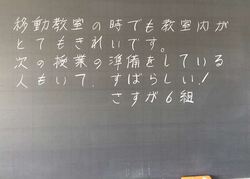 移動教室の時でも教室内が
とてもきれいです。
次の授業の準備をしている
人もいて、すばらしい!
さすが6組